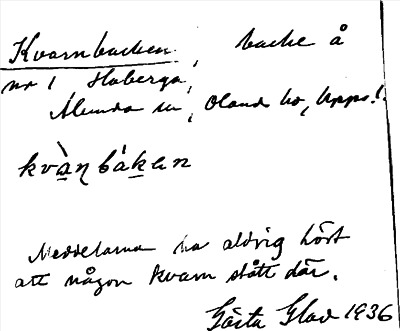 Kvarnbacken, backe å
nr 1 Haberga,
Alunda sn, Olands hd, Upps.l.
kvàn bákən
Meddelarna ha aldrig hört
att någon kvarn stått där.
Gösta Glad 1936